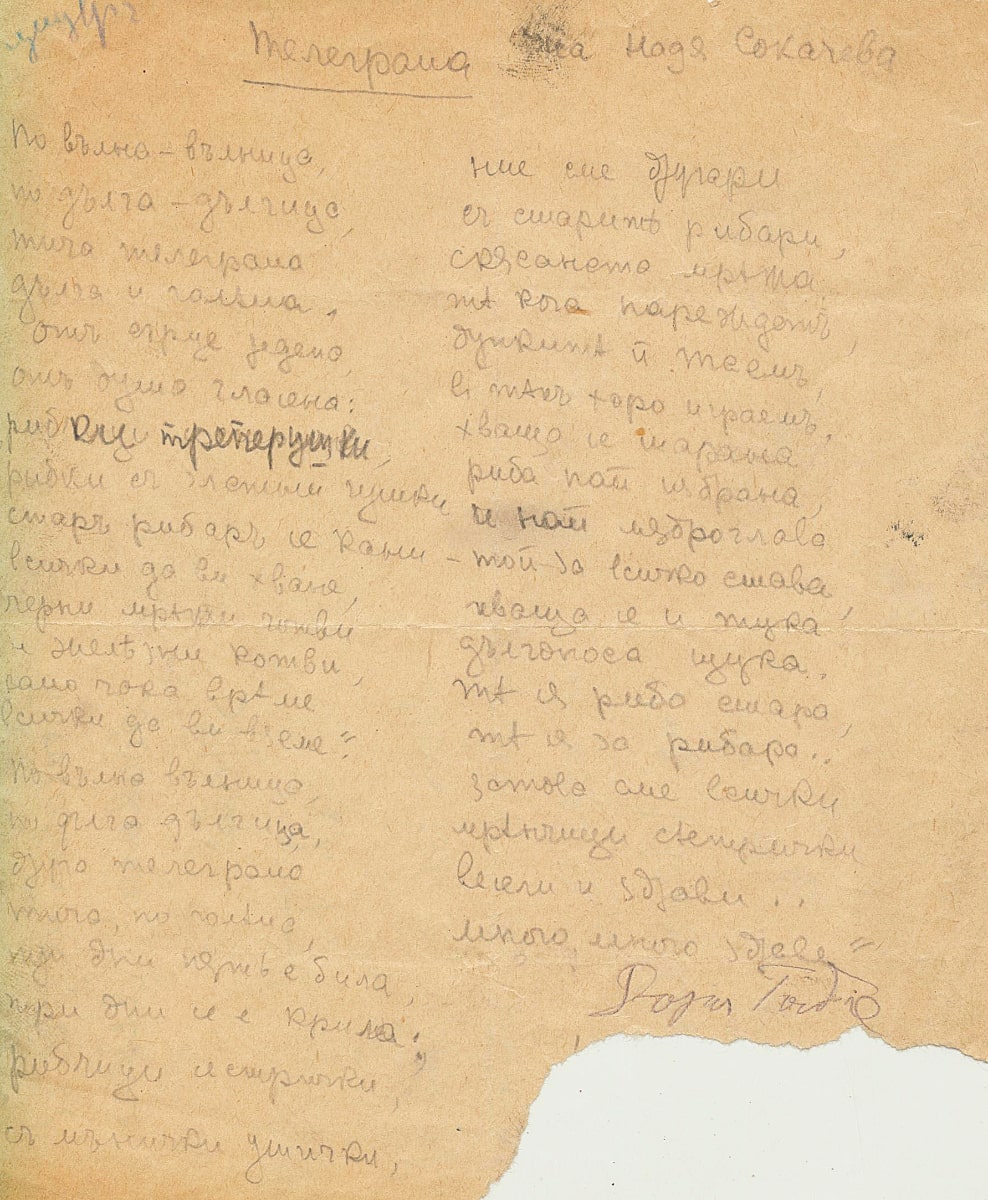 Телеграма на Надя Сокачева
По вълна – вълница,
по дълга – дълчица,
тича телеграма
дълга и голѣма,
отъ сърце
отъ душа
рибки трепе рушки,
рибки съ златни чушки
старъ рибаръ се кани –
всички да ви хване,
черни мрѣжи готви
и желѣзни котви,
само чака врѣме
всички да ви вземе"
По вълна вълница,
по дълга дълчица,
друга телеграма
тича, по голѣма,
три дни пѫть е била,
три дни се е крила:
рибчици сестрички,
съ мънички ушички,
ние сме другари
съ старитѣ рибари,
мрѣжа,
тѣ кога нареждатъ,
дупкитѣ ѝ
въ тѣхъ хоро играемъ,
хваща се шарана
риба най избрана,
и най
той за всичко става,
хваща се и тука
дългоноса щука.
тѣ я риба стара,
тѣ я за рибара..
затова сме всички
мрѣнчици сестрички
весели и здрави..
много, много здрави"